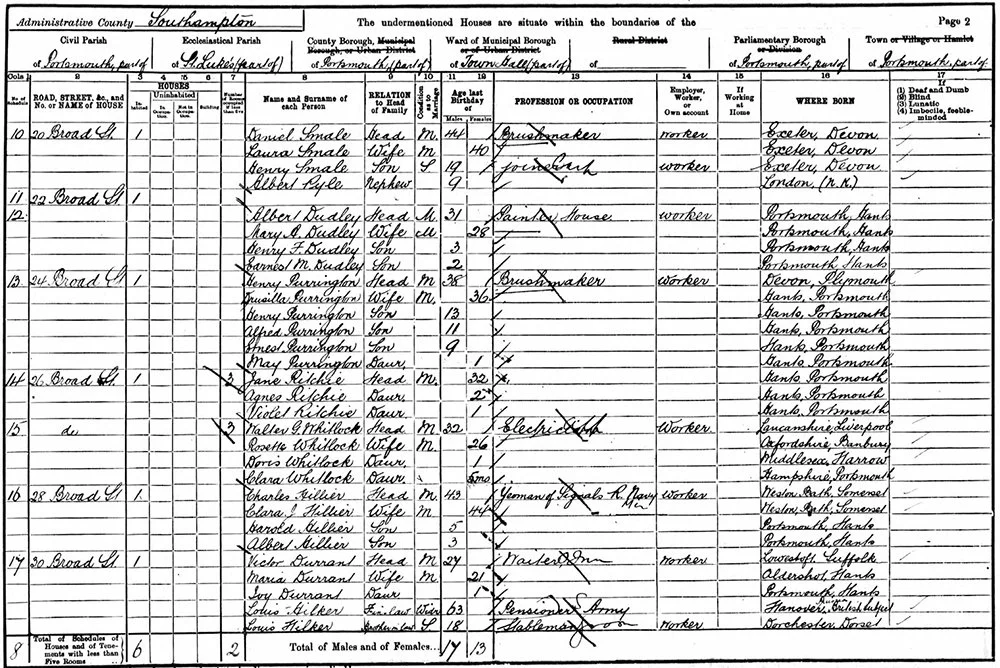 Administrative County Southampton The undermentioned Houses are situate within the boundaries of the Page 2
Civil Parish Ecclesiastical Parish County Borough, Municipal Borough, or Urban District Ward of Municipal Borough or of Urban District Rural District Parliamentary Borough or Division Town or Village or Hamlet
of Portsmouth, part of of St Lukes (part of) of Portsmouth, (part of) of Town Hall (part of) of of Portsmouth, part of of Portsmouth, part of
Cols 1 2 3 4 5 6 7 8 9 10 11 12 13 14 15 16 17
No. of Schedule ROAD, STREET, &c., and No. or NAME of HOUSE HOUSES Inhabited Uninhabited In Occupation Not in Occupation Building Number of Rooms occupied if less than five Name and Surname of each Person RELATION to Head of Family Condition as to Marriage Age last Birthday of Males Females PROFESSION OR OCCUPATION Employer, Worker, or Own account If Working at Home WHERE BORN If (1) Deaf and Dumb (2) Blind (3) Lunatic (4) Imbecile, feeble-minded
10 20 Broad St 1 Daniel Smale Head M. 44 Brushmaker worker Exeter, Devon
Laura Smale Wife M 40 Exeter, Devon
Henry Smale Son S 19 worker Exeter, Devon
Albert Pyle Nephew 9 London, (N.K.)
11 22 Broad St 1
12 Albert Dudley Head M. 31 Painter House worker Portsmouth, Hants
Mary A. Dudley Wife M 28 Portsmouth, Hants
Henry F. Dudley Son 3 Portsmouth, Hants
Earnest M. Dudley Son 2 Portsmouth Hants
13 24 Broad St 1 Henry Purrington Head M 38 Brushmaker Worker Devon, Plymouth
Drusilla Purrington Wife M. 36 Hants, Portsmouth
Henry Purrington Son 13 Hants, Portsmouth
Alfred Purrington Son 11 Hants, Portsmouth
Ernest Purrington Son 9 Hants, Portsmouth
May Purrington Daur. 1 Hants Portsmouth
14 26 Broad St. 1 3 Jane Ritchie Head M. 32 Hants, Portsmouth
Agnes Ritchie Daur. 2 Hants, Portsmouth
Violet Ritchie Daur. 1 Hants, Portsmouth
15 do 3 Walter G. Whitlock Head M. 32 Worker Lancanshire, Liverpool
Rosetta Whitlock Wife M. 26 Oxfordshire, Banbury
Doris Whitlock Daur. 1 Middlesex, Harrow
Clara Whitlock Daur. 5mo Hampshire, Portsmouth
16 28 Broad St 1 Charles Hillier Head M. 43 Yeoman of Signals R. Navy Worker Weston Bath, Somerset
Clara J. Hillier Wife M 44 Weston, Bath, Somerset
Harold Hillier Son 5 Portsmouth, Hants
Albert Hillier Son 3 Portsmouth, Hants
17 30 Broad St 1 Victor Durrant Head M 27 Waiter Inn Worker Lowestoft, Suffolk
Maria Durrant Wife M. 21 Aldershot, Hants
Ivy Durrant Daur 1 Portsmouth, Hants
Louis Hilker F in law Wier 63 Pensioner Army Hanover, British Subject
Louis Hilker Brother in law S 18 Stableman Worker Dorchester, Dorset
8 Total of Schedules of Houses and of Tenements with less than Five Rooms 6 2 Total of Males and of Females... 17 13